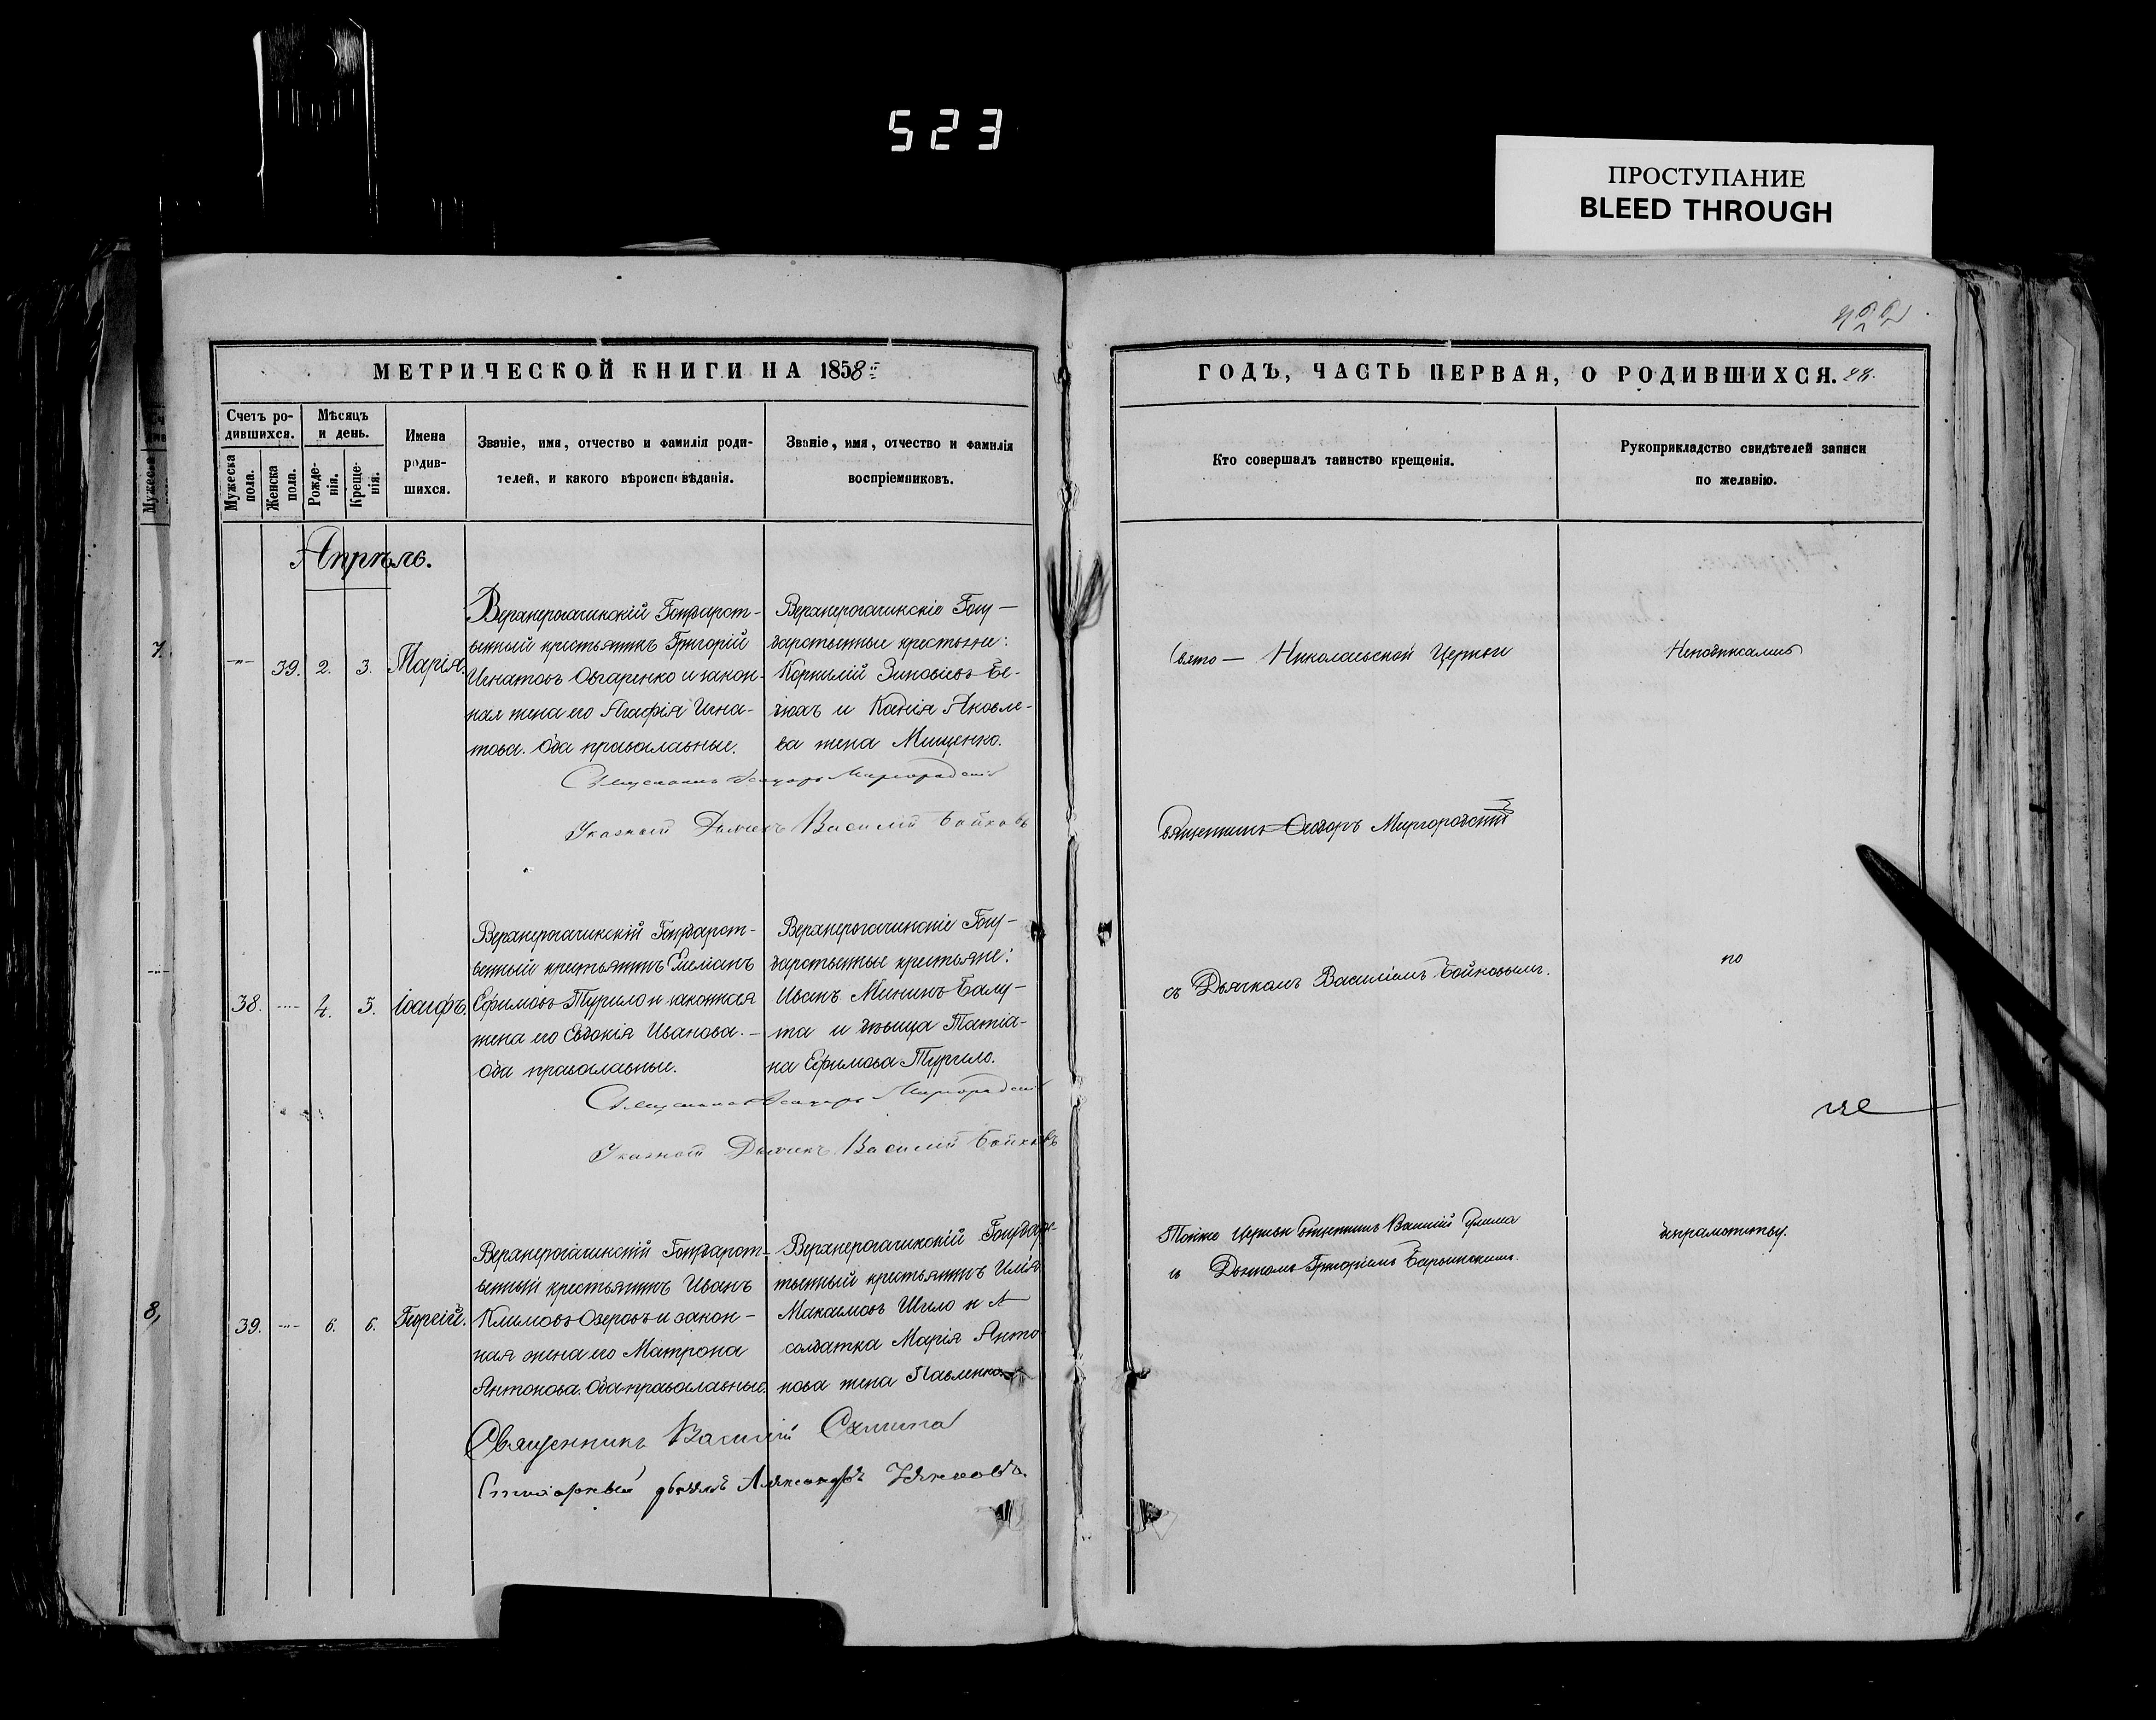 523
ПРОСТУПАНИЕ
BLEED THROUGH
МЕТРИЧЕСКОЙ КНИГИ НА 1858
Счетъ родившихся.
Мужеска пола.
Женска пола.
Мѣсяцъ и день.
Рожденія.
Крещенія.
Имена родившихся.
Званіе, имя, отчество и фамилія родителей, и какого вѣроисповѣданія.
Званіе, имя, отчество и фамилія воспріемниковъ.
Апрѣль.
39. 2. 3. Марія.
Верхнерогачикскій Государст-
венный крестьянинъ Григорій
Игнатовъ Овчаренко и закон-
ная жена его Агафія Игна-
това. Оба православные.
Верхнерогачикскіе Госу-
дарственные крестьяне:
Корнилій Зиновіевъ
и Яковле-
ва жена Мищенко.
Священникъ Ѳеодоръ Миргородскій
Указный Дьячекъ Василій Бойковъ
38. 4. 5. Іосифъ.
Верхнерогачикскій Государст-
венный крестьянинъ Емеліанъ
Ефимовъ Турило и законная
жена его Евдокія Иванова.
Оба православные.
Верхнерогачикскіе Госу-
дарственные крестьяне:
Иванъ Мининъ Балу-
та и дѣвица Татіа-
на Ефимова Турило.
Священникъ Ѳеодоръ Миргородскій
Указный Дьячекъ Василій Бойковъ
39. 6. 6. Георгій.
Верхнерогачикскій Государст-
венный крестьянинъ Иванъ
Климовъ Озеровъ и закон-
ная жена его Матрона
Антонова. Оба православные.
Верхнерогачикскій Государ-
ственный крестьянинъ Илія
Максимовъ Шило и
солдатка Марія Анто
нова жена Павленкова
Священникъ Василій
Стихарный Александръ
7.
8,
ГОДЪ, ЧАСТЬ ПЕРВАЯ, О РОДИВШИХСЯ.
Кто совершалъ таинство крещенія.
Рукоприкладство свидѣтелей записи по желанію.
Свято — Николаевской Церкви
Неподписались
Священникъ Ѳеодоръ Миргородскій
съ Дьячкомъ Василіемъ Бойковымъ.
по
Тойже Церкви Священникъ Василій
съ Дьячкомъ Григоріемъ
неграмотству.